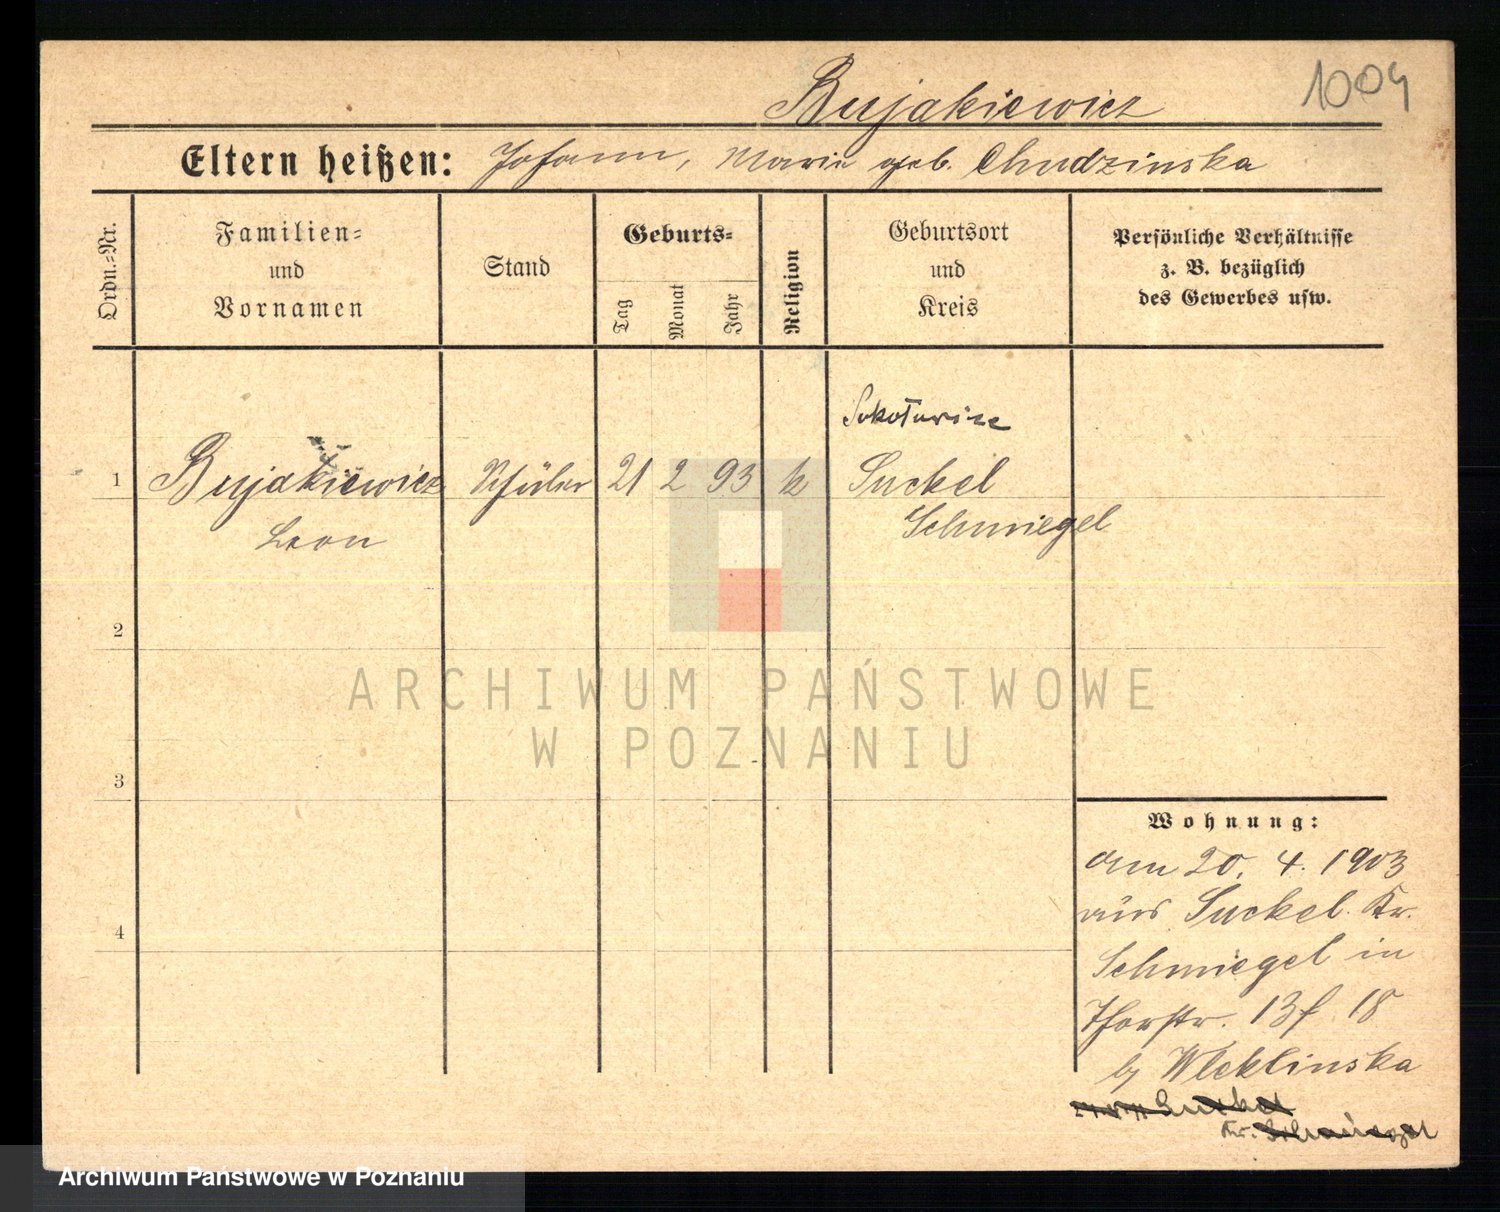 1004
Bujakiewicz
Eltern heißen: Johann, Marie geb. Chudzinska
Ordn.-Nr.
Familien- und Vornamen
Stand
Geburts-
Tag
Monat
Jahr
Religion
Geburtsort und Kreis
Persönliche Verhältnisse
z. B. bezüglich
des Gewerbes usw.
1
Bujakiewicz
Leon
Schüler
21
2
93
k
Suckel
Schmiegel
2
3
4
Wohnung:
am 20. 4. 1903
aus Suckel. Kr.
Schmiegel in
Thorstr. 13 18
by Wleklinska
Suckel
Kr. Schmiegel
ARCHIWUM PAŃSTWOWE
W POZNANIU
Archiwum Państwowe w Poznaniu